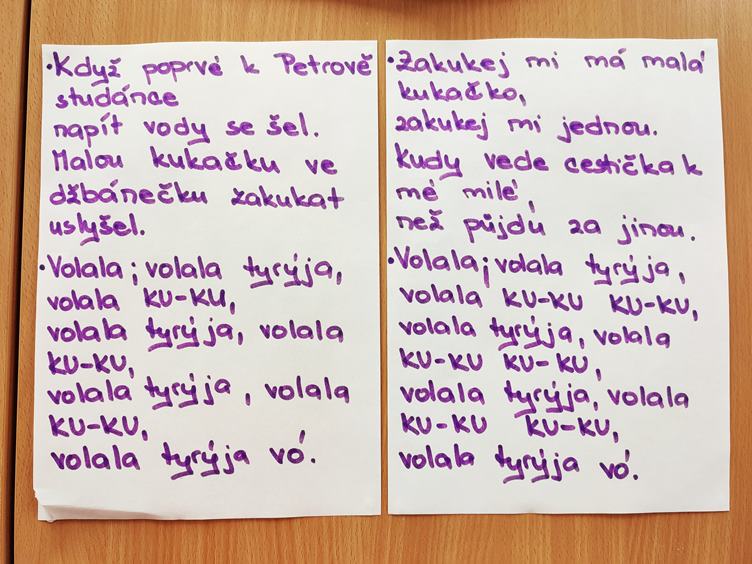 •Když poprvé k Petrově
studánce
napít vody se šel.
Malou kukačku ve
džbánečku zakukat
uslyšel.
•Volala; volala tyrýja,
volala KU-KU,
volala tyrýja, volala
KU-KU,
volala tyrýja, volala
KU-KU,
volala tyrýja vó.
•Zakukej mi má malá
kukačko,
zakukej mi jednou.
Kudy vede cestička k
mé milé,
než půjdu za jinou.
•Volala; volala tyrýja,
volala KU-KU KU-KU,
volala tyrýja, volala
KU-KU KU-KU,
volala tyrýja, volala
KU-KU KU-KU,
volala tyrýja vó.